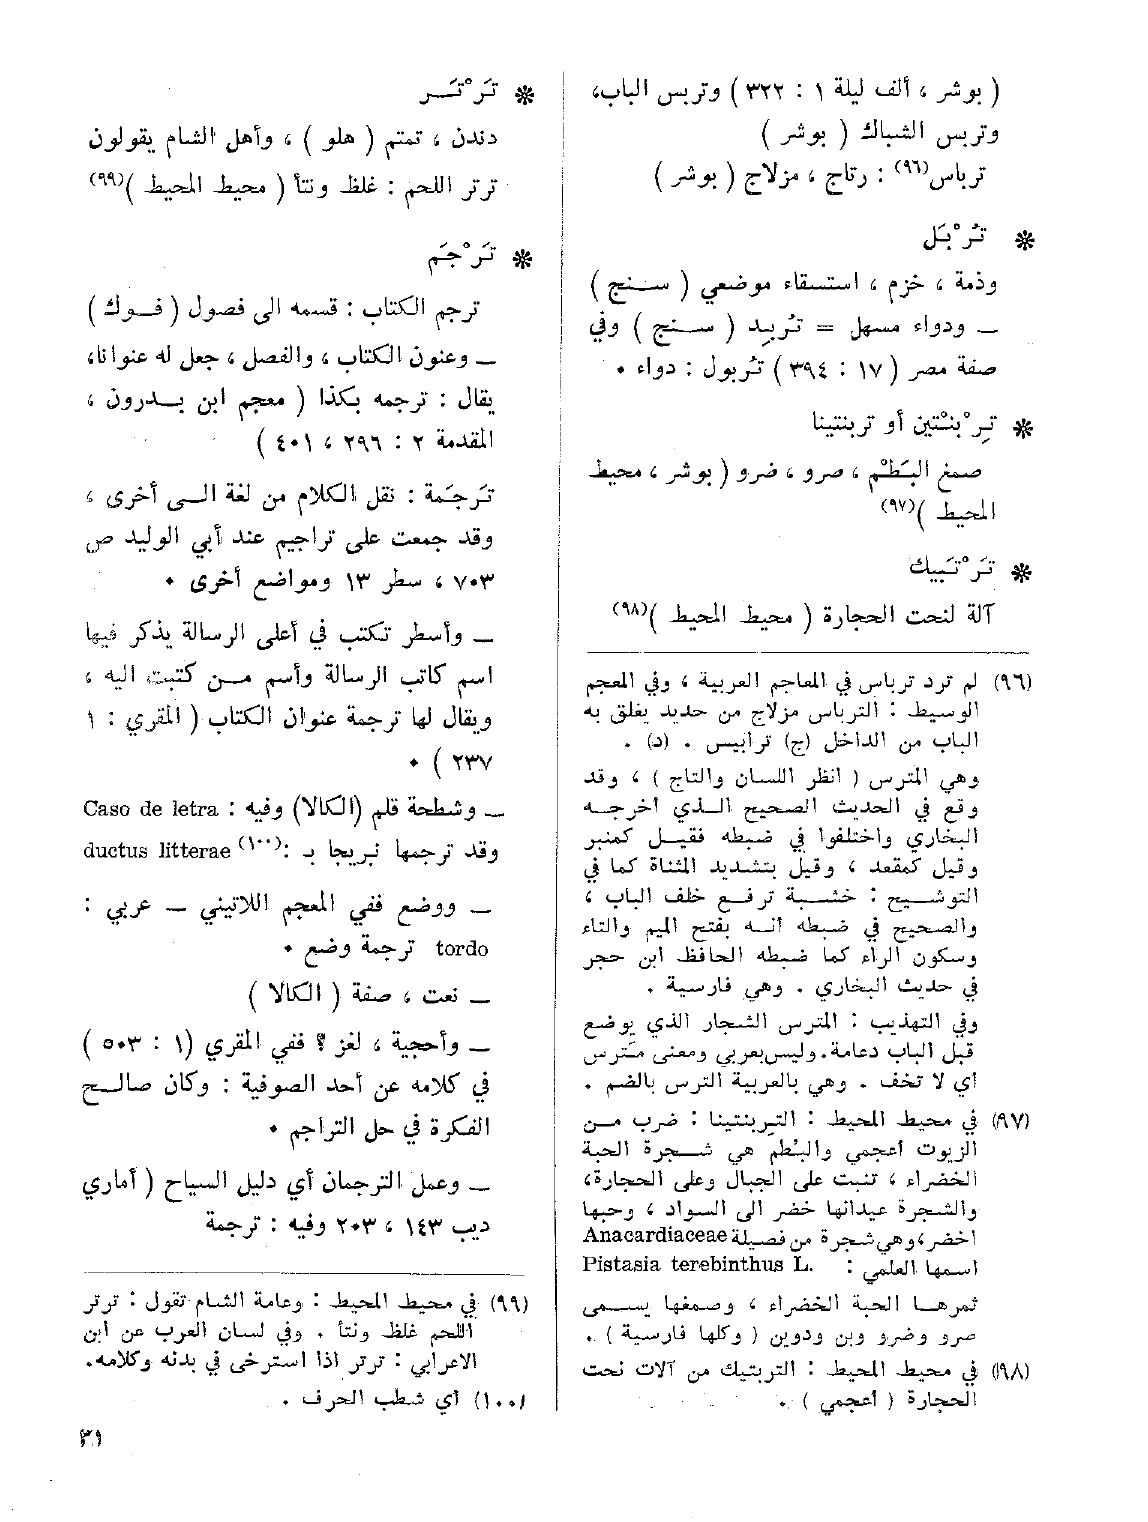 ( بوشر ، ألف ليلة ١ : ٣٢٢ ) وتربس الباب،
وتربس الشباك ( بوشر )
ترباس(٩٦) : رتاج ، مزلاج ( بوشر )
* تُرْبَل
وذمة ، خزم ، استسقاء موضعي ( سنج )
– ودواء مسهل = تُربِد ( سنج ) وفي
صفة مصر ( ١٧ : ٣٩٤ ) تُربول : دواء .
* تِرْبنْتين أو تربنتينا
صمغ البَطْم ، صرو ، ضرو ( بوشر ، محيط
المحيط )(٩٧)
* تَرْتَبيك
آلة لنحت الحجارة ( محيط المحيط )(٩٨)
(٩٦) لم ترد ترباس في المعاجم العربية ، وفي المعجم
الوسيط : الترباس مزلاج من حديد يغلق به
الباب من الداخل (ج) ترابيس . (د) .
وهي المترس ( انظر اللسان والتاج ) ، وقد
وقع في الحديث الصحيح الذي أخرجه
البخاري واختلفوا في ضبطه فقيل كمنبر
وقيل كمقعد ، وقيل بتشديد المثناة كما في
التوشيح : خشبة ترفع خلف الباب ،
والصحيح في ضبطه انه بفتح الميم والتاء
وسكون الراء كما ضبطه الحافظ ابن حجر
في حديث البخاري . وهي فارسية .
وفي التهذيب : المترس الشجار الذي يوضع
قبل الباب دعامة. وليس بعربي ومعنى مَترس
أي لا تخف . وهي بالعربية الترس بالضم .
(٩٧) في محيط المحيط : التربنتينا : ضرب من
الزيوت أعجمي والبُطم هي شجرة الحبة
الخضراء ، تنبت على الجبال وعلى الحجارة،
والشجرة عيدانها خضر الى السواد ، وحبها
اخضر، وهي شجرة من فصيلة Anacardiaceae
اسمها العلمي : Pistasia terebinthus L.
ثمرها الحبة الخضراء ، وصمغها يسمى
صرو وضرو وبن ودوين ( وكلها فارسية ) .
(٩٨) في محيط المحيط : التربتيك من آلات نحت
الحجارة ( أعجمي ) .
* تَرْتَر
دندن ، تمتم ( هلو ) ، وأهل الشام يقولون
ترتر اللحم : غلظ ونتأ ( محيط المحيط )(٩٩)
* تَرْجَم
ترجم الكتاب : قسمه الى فصول ( فوك )
– وعنون الكتاب ، والفصل ، جعل له عنوانا،
يقال : ترجمه بكذا ( معجم ابن بدرون ،
المقدمة ٢ : ٢٩٦ ، ٤٠١ )
تَرجَمة : نقل الكلام من لغة الى أخرى ،
وقد جمعت على تراجيم عند أبي الوليد ص
٧٠٣ ، سطر ١٣ ومواضع أخرى .
– وأسطر تكتب في أعلى الرسالة يذكر فيها
اسم كاتب الرسالة وأسم من كتبت اليه ،
ويقال لها ترجمة عنوان الكتاب ( المقري : ١
٢٣٧ ) .
– وشطحة قلم (الكالا) وفيه : Caso de letra
وقد ترجمها نبريجا بـ :(١٠٠) ductus litterae
– ووضع ففي المعجم اللاتيني – عربي :
tordo ترجمة وضع .
– نعت ، صفة ( الكالا )
– وأحجية ، لغز ؟ ففي المقري (١ : ٥٠٣ )
في كلامه عن أحد الصوفية : وكان صالح
الفكرة في حل التراجم .
– وعمل الترجمان أي دليل السياح ( أماري
ديب ١٤٣ ، ٢٠٣ وفيه : ترجمة
(٩٩) في محيط المحيط : وعامة الشام تقول : ترتر
اللحم غلظ ونتأ . وفي لسان العرب عن ابن
الاعرابي : ترتر اذا استرخى في بدنه وكلامه.
(١٠٠) أي شطب الحرف .
٣١